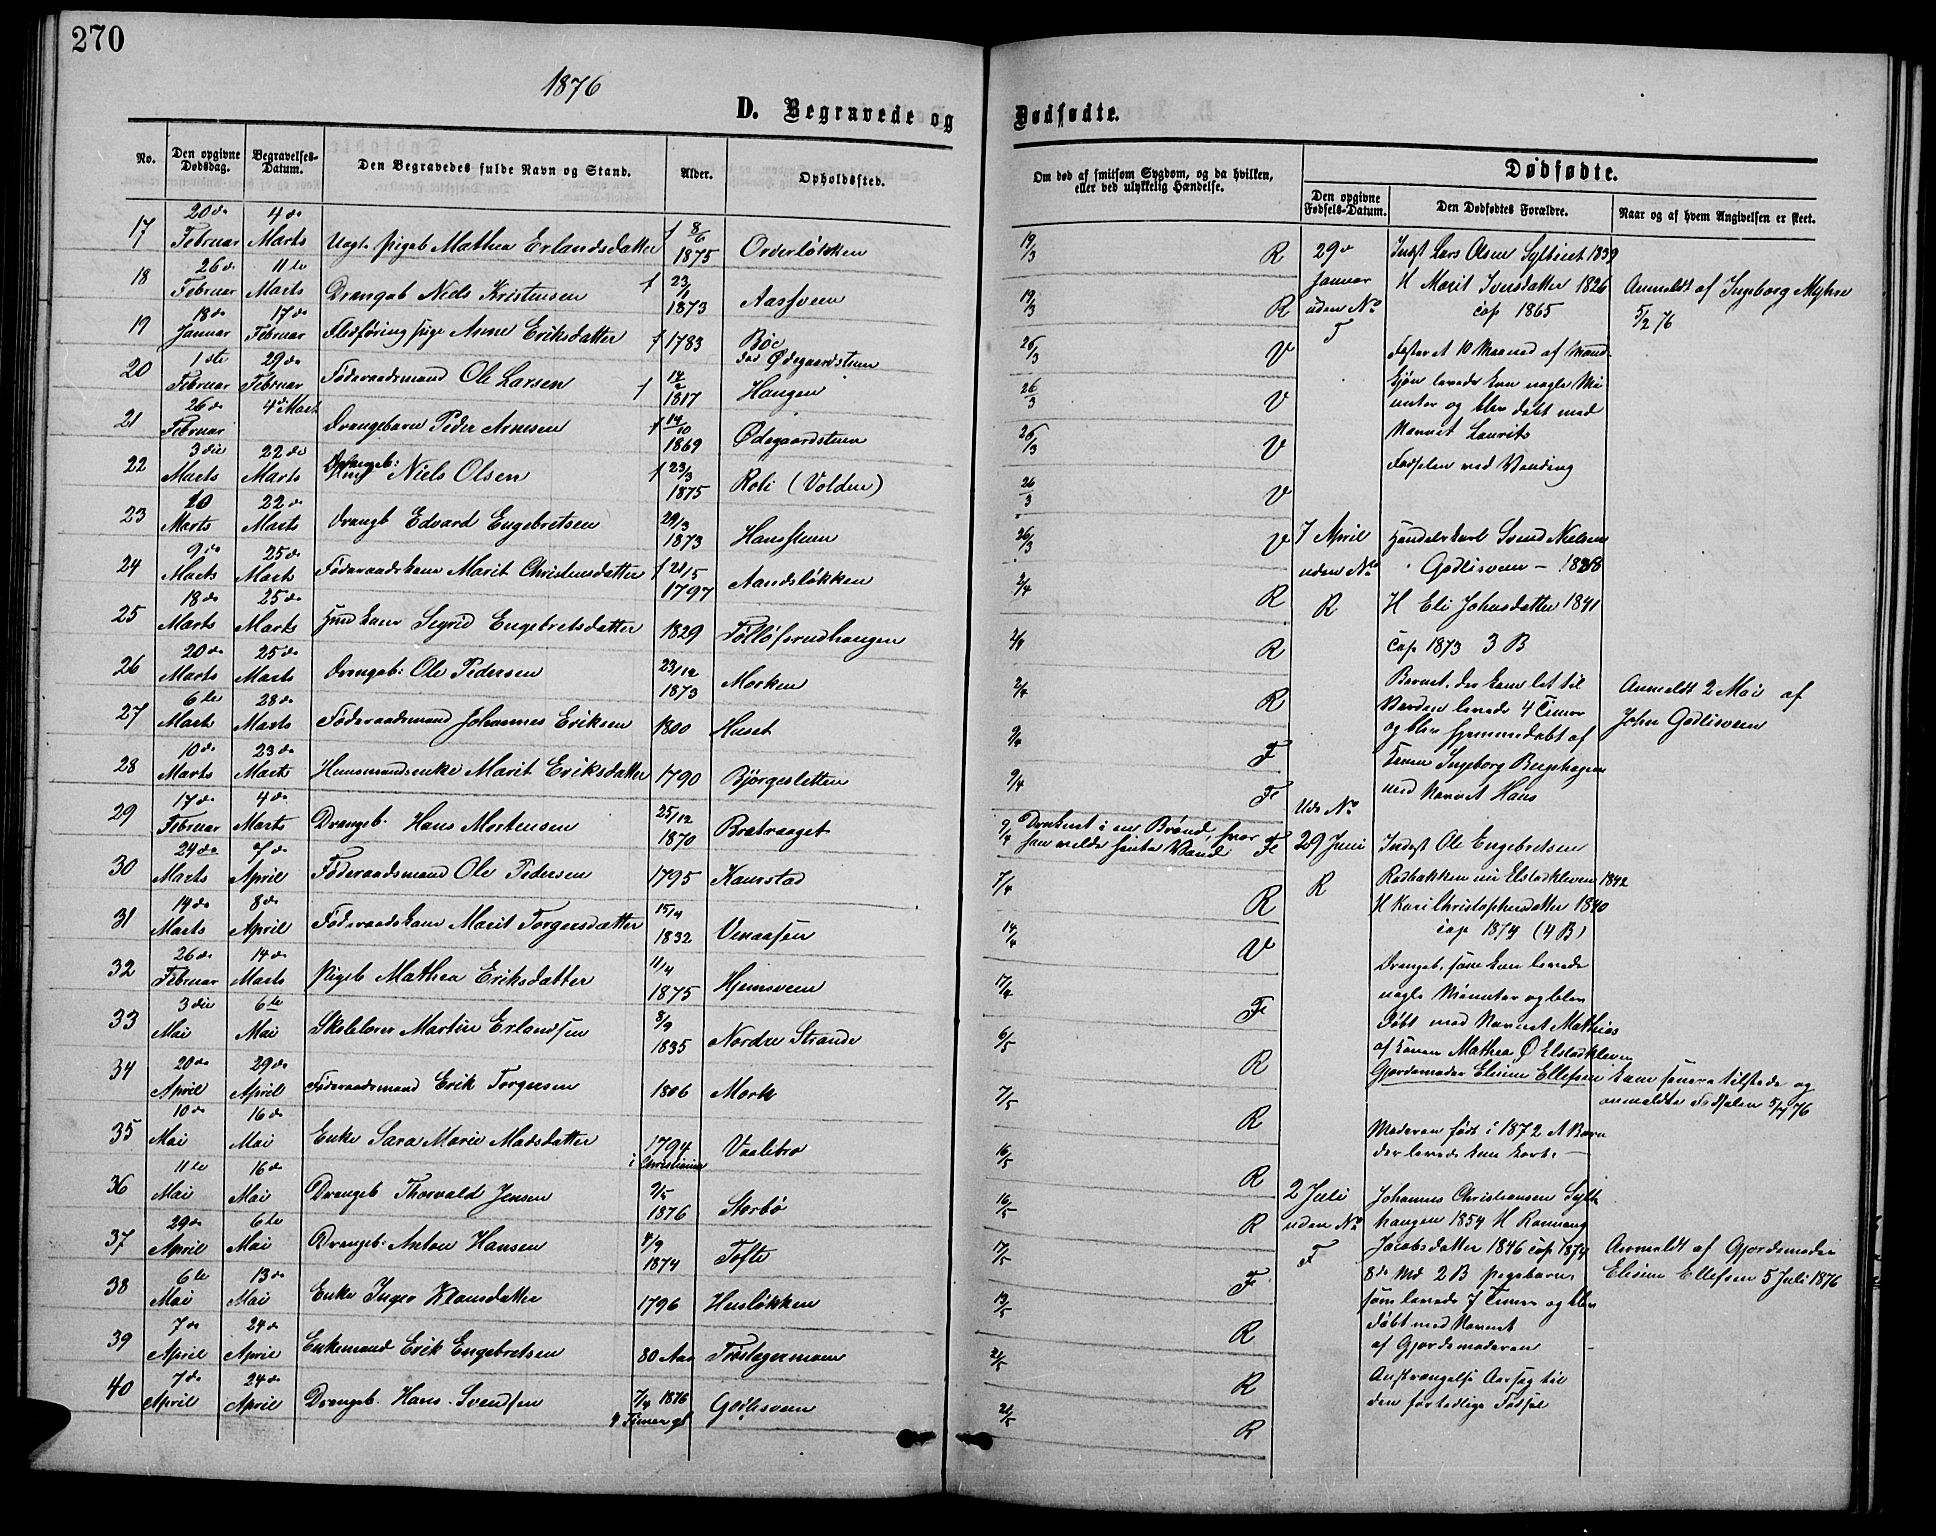 270
1876
D. Begravede og
No.
Den opgivne Dødsdag.
Begravelses-Datum.
Den Begravedes fulde Navn og Stand.
Alder.
Opholdssted.
17 20de Februar 4de Marts Uægt. pigeb Mathea Erlandsdatter f 8/6 1875 Orderløkken
18 26de Februar 11te Marts Drengeb Niels Kristensen f 23/1 1873 Aassveen
19 18de Januar 17de Februar Anne Eriksdatter f 1783 Bøe
20 1ste Februar 29de Februar Føderaadsmand Ole Larsen f 1817 Haugen
21 26de Februar 4de Mart Drengebarn Peder Arnesen f 14/10 1869 Ødegaardstuen
22 3die Marts 22de Marts Drengeb: Niels Olsen f 23/3 1875 Roli (Volden)
23 10 Marts 22de Marts Drengb Edvard Engebretsen 29/3 1873 Hansstuen
24 9de Marts 25de Marts Føderaadskone Marit Christensdatter f 21/5 1797 Aandsløkken
25 18de Marts 25de Marts Sigrid Engebretsdatter 1829
26 20de Marts 25de Marts Drengeb: Ole Pedersen 23/12 1873 Morken
27 6te Marts 28de Marts Føderaadsmand Johannes Eriksen 1800 Huset
28 10de Marts 23de Marts Huusmandsenke Marit Eriksdatter 1790 Bjørgesletten
29 17de Februar 4de Marts Drengeb. Hans Mortensen 25/12 1870 Bratvaaget
30 24de Marts 7de April Føderaadsmand Ole Pedersen 1795 Kaurstad
31 14de Marts 8de April Føderaadskone Marit Torgersdatter 15/4 1832 Venaasen
32 26de Februar 14de Marts Pigeb Mathea Eriksdatter 11/4 1875 Hjemsveen
33 3die Mai 6te Mai Skolelærer Martin Erlandsen 8/9 1835 Nordre Strande
34 20de April 29de April Føderaadsmand Erik Torgersen 1806 Mork
35 10de Mai 16de Mai Enke Sara Marie Madsdatter 1794 i Christiania Vaalebro
36 11te Mai 16de Mai Drengeb Thorvald Jensen 9/5 1876 Storbø
37 29de April 6te Mai Drengeb: Anton Hansen 4/9 1874 Tofte
38 6te Mai 13de Mai Enke Inger Hansdatter 1796 Husløkken
39 7de April 24de April Enkemand Erik Engebretsen 80 Aar
40 7de April 24de April Drengeb. Hans Svendsen 7/4 1876 4 Timer gl Godlisveen
Dødfødte.
Om død af smitsom Sygdom, og da hvilken, eller ved ulykkelig Hændelse.
Dødfødte.
Den opgivne Fødsels-Datum.
Den Dødfødtes Forældre.
Naar og af hvem Angivelsen er skeet.
19/3 R
19/3 R
26/3 V
26/3 V
26/3 V
26/3 V
26/3 V
2/4 R
2/4 R
2/4 R
9/4 F
9/4 F
9/4 Druknet i en Brønd, hvor
han vilde hente Vand F
7/4 R
14/4 V
17/4 F
6/5 R
7/5 R
16/5 R
16/5 R
17/5 F
13/5 R
21/5 R
21/5 R
29de Januar uden No F
Inds Lars Olsen 1839
H Marit Iversdatter 1826
cop 1865
Fosteret 10 Maaned af Mand-
kjøn levede kun nogle Mi-
nuter og blev døbt med
Navnet Laurits
Fødselen ved Vending
Anmeldt af Ingeborg Myhre
5/2 76
7 April uden No R
Handelskarl Svend Nielsen
Godlisveen - 1838
H Eli Johnsdatter 1841
cop 1873 3 B
Barnet, der kom let til
Verden levede 4 Timer
og blev hjemmedøbt af
Konen Ingeborg Bergehagen
med Navnet Hans
Anmeldt 2 Mai af
John Godlisveen
Uds No
29 Juni R
Inds Ole Engebretsen
Rodbakken nu Elstadkleven 1842
H Kari Christophersdatter 1840
cop 1874 (4 B)
Drengeb. som kun levede
nogle Minuter og blev
døbt med Navnet Mathias
af Konen Mathea Ø Elstadkleven
Gjordemoder Elisine Ellefsen kom senere tilstede og
anmeldte Fødselen 5/7 76
Moderen født i 1872 Barn
der levede kun kort. -
2 Juli uden No F
Johannes Christiansen Sylt-
haugen 1854 H Rønnaug
Jacobsdatter 1846 cop 1874
8de Md 2 B pigebarn,
som levede 7 Timer og blev
døbt med Navnet
af Gjordemoderen
Anstrængelse Aarsag til
den fortidlige Fødsel
Anmeldt af Gjordemoder
Elisine Ellefsen 5 Juli 1876